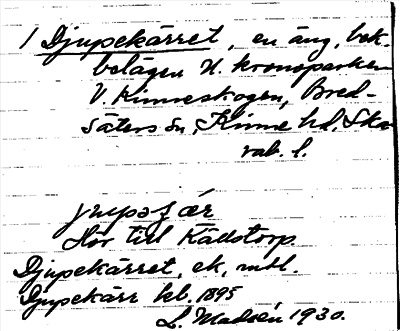 1 Djupekärret, en äng, bek.
belägen N. kronoparken
V. Kinneskogen, Bred-
säters sn, Kinne hd, Ska-
rab. l.
Hör till Källstorp.
Djupekärret, ek,
Djupekärr kb. 1895
L. Madsén 1930.